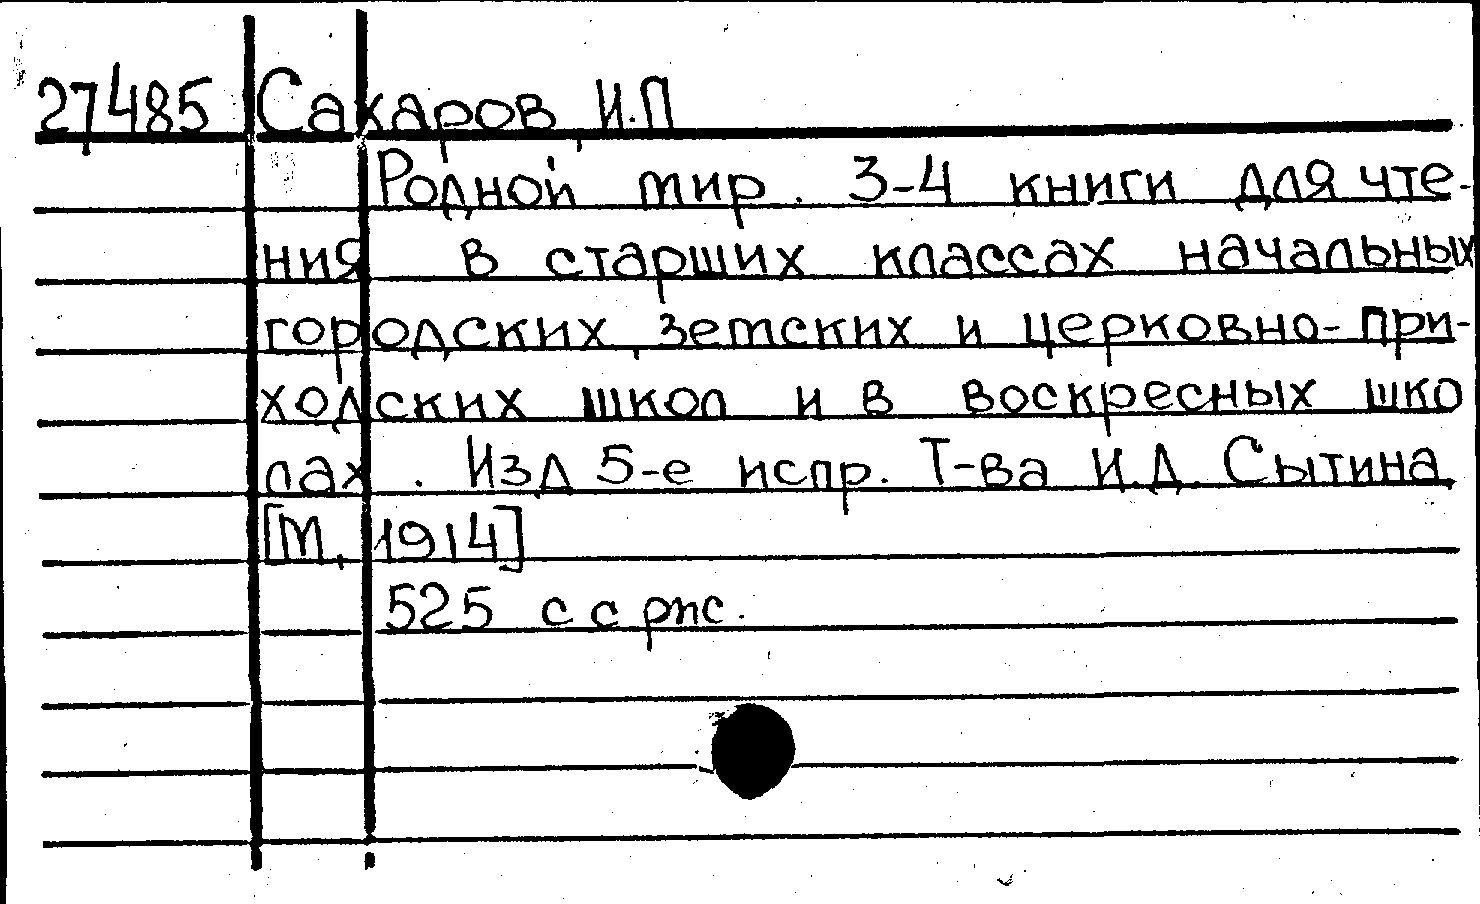 27485 Сакаров, И.П
Родной мир. 3-4 книги для чте-
ния в старших классах начальных
городских, земских и церковно-при-
ходских школ и в воскресных шко
лах. Изд 5-е испр. Т-ва И.Д. Сытина
[М, 1914]
525 с с рис.